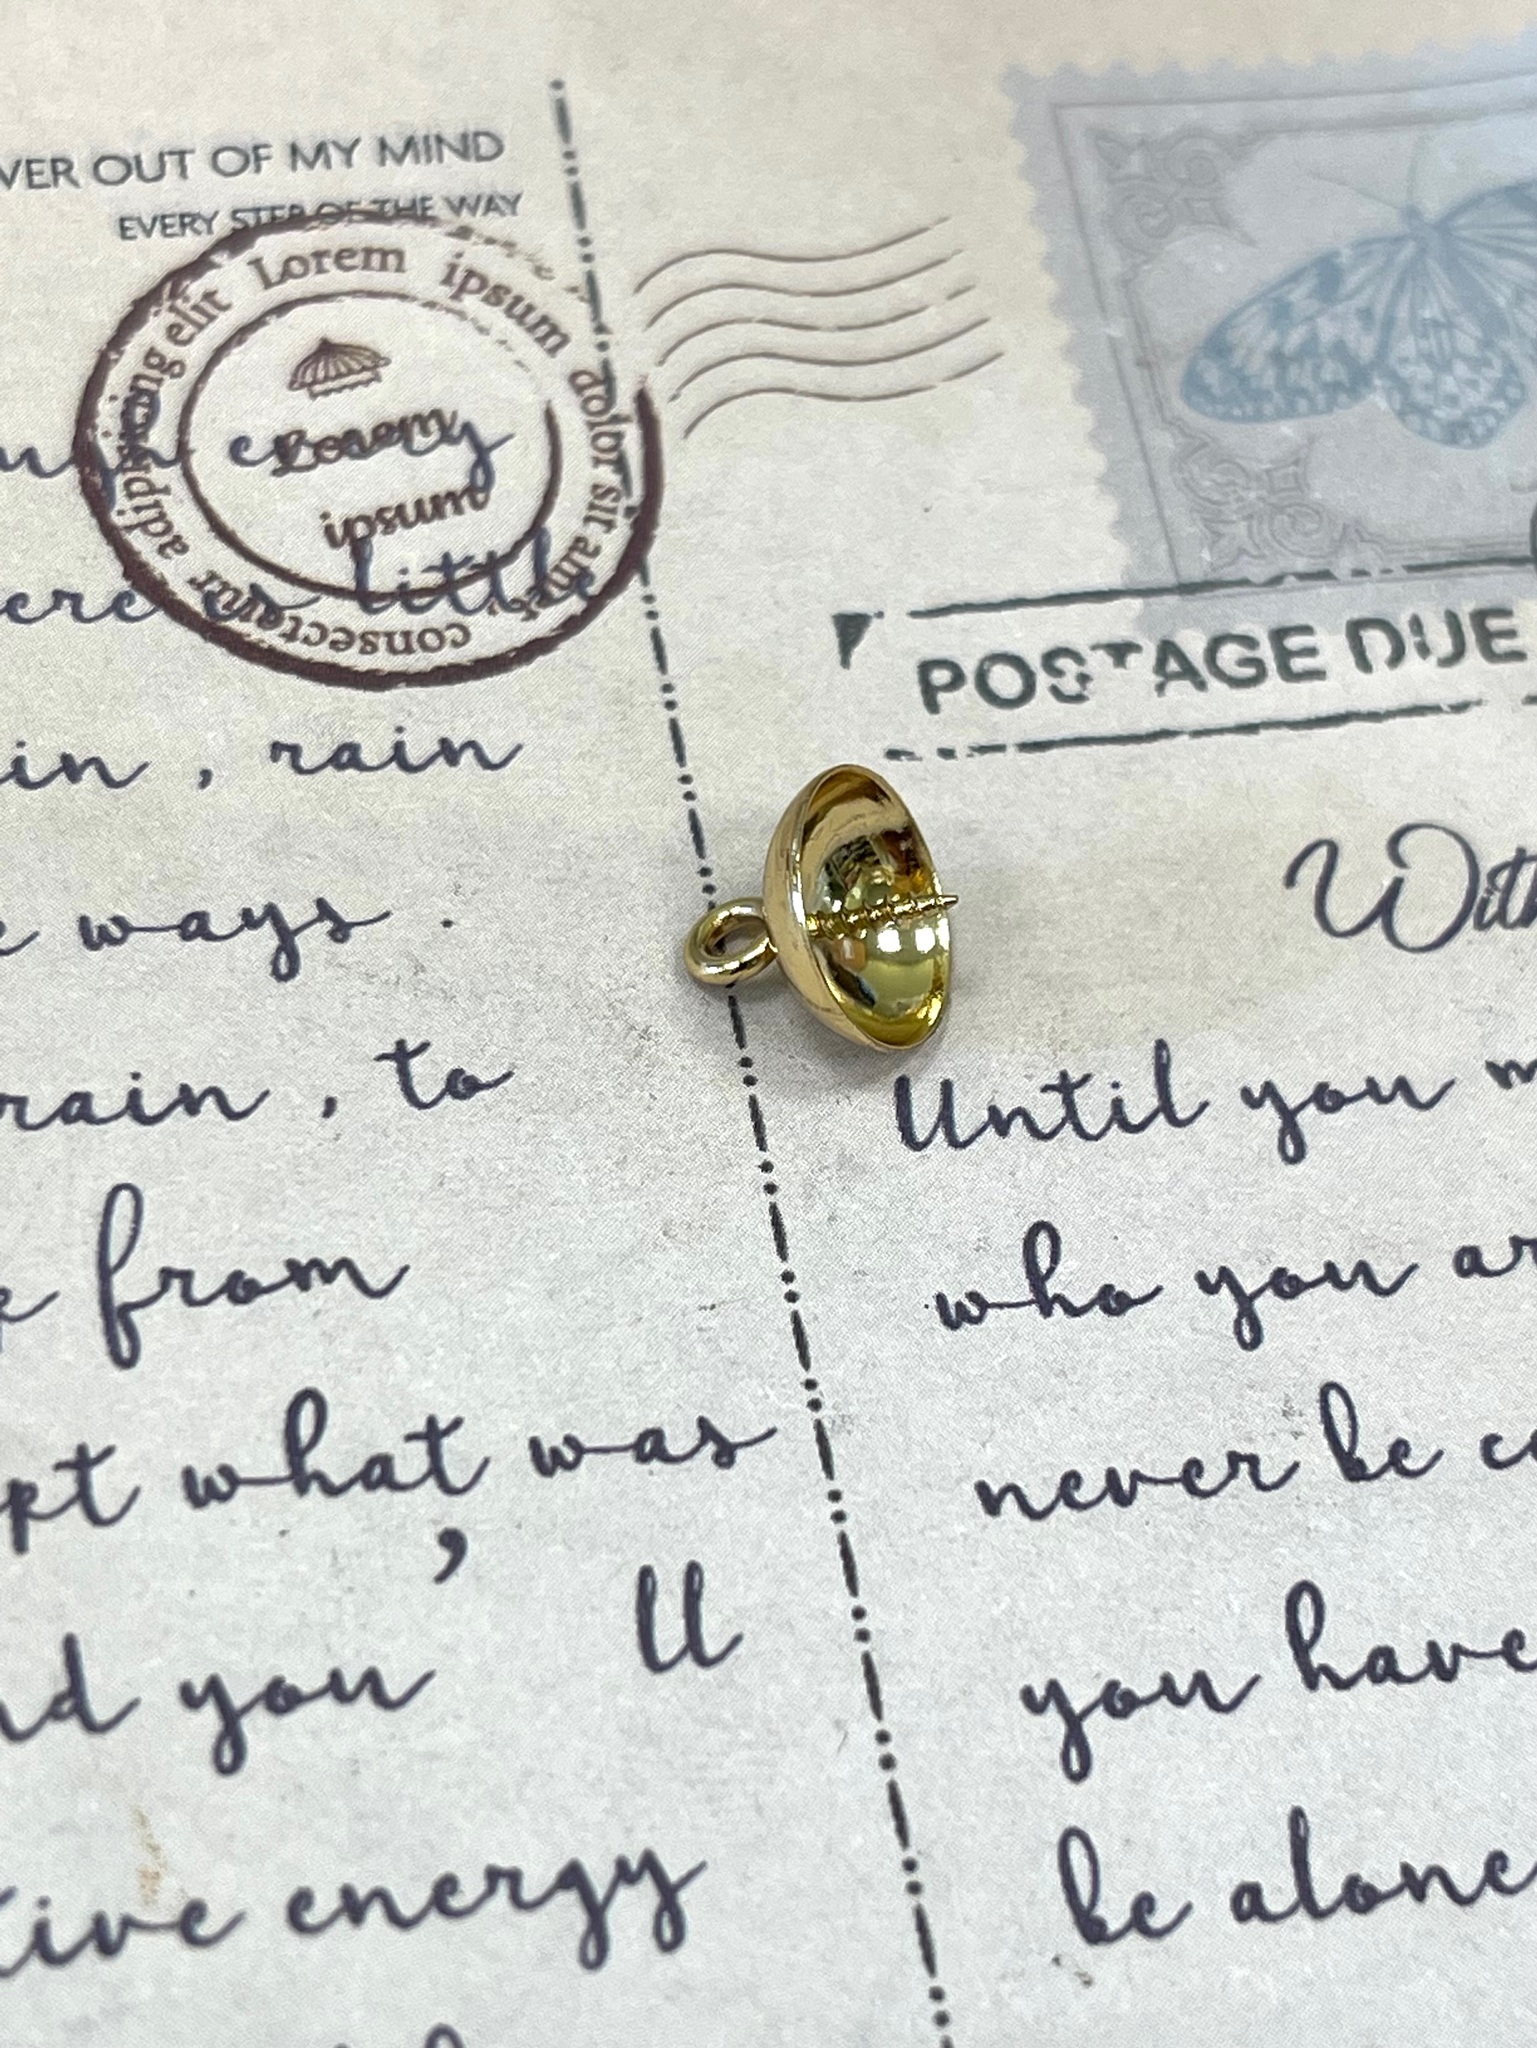 OUT OF MY MIND
EVERY STEP OF THE WAY
Lorem ipsum dolor sit amet, consectetur adipisicing elit
Lorem
ipsum
every
little
, rain
ways .
rain , to
from
what was
you ' ll
energy
POSTAGE DUE
Until you
who you
never be
you have
be alone